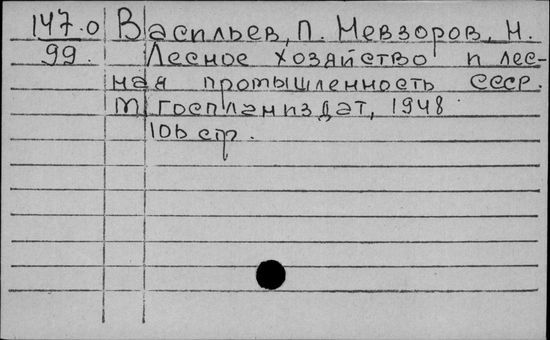 147.0 Васильев, П. Невзоров, Н.
99. Лесное хозяйство и лес-
ная промышленность СССР.
М Госпланиздат, 1948
106 стр.